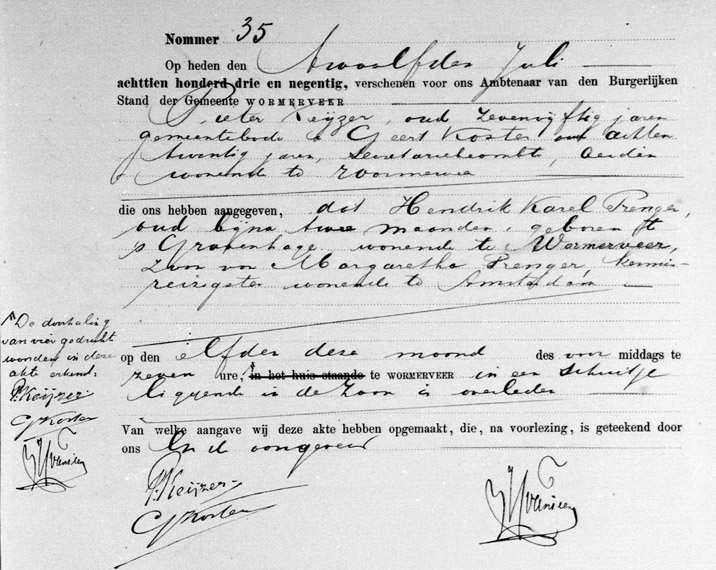 Nommer 35
Op heden den Twaalfden Juli
achttien honderd drie en negentig, verschenen voor ons Ambtenaar van den Burgerlijken
Stand der Gemeente WORMERVEER
Pieter Keijzer, oud zevenvijftig jaren
gemeentebode & Geert Koster oud achten
twintig jaren, Secretarie beambte, beiden
wonende te Wormerveer
die ons hebben aangegeven, dat Hendrik Karel Prenger,
oud bijna twee maanden, geboren te
s Gravenhage wonende te Wormerveer,
zoon van Margaretha Prenger, kermis-
reizigster wonende te Amsterdam
op den elfden deze maand des voor middags te
zeven ure, in het huis staande te WORMERVEER in een schuitje
liggende in de Zaan is overleden
Van welke aangave wij deze akte hebben opgemaakt, die, na voorlezing, is geteekend door
ons en de aangevers
De doorhaling
van vier gedrukte
woorden in deze
akte erkend:
P. Keijzer
G Koster
P. Keijzer
G Koster